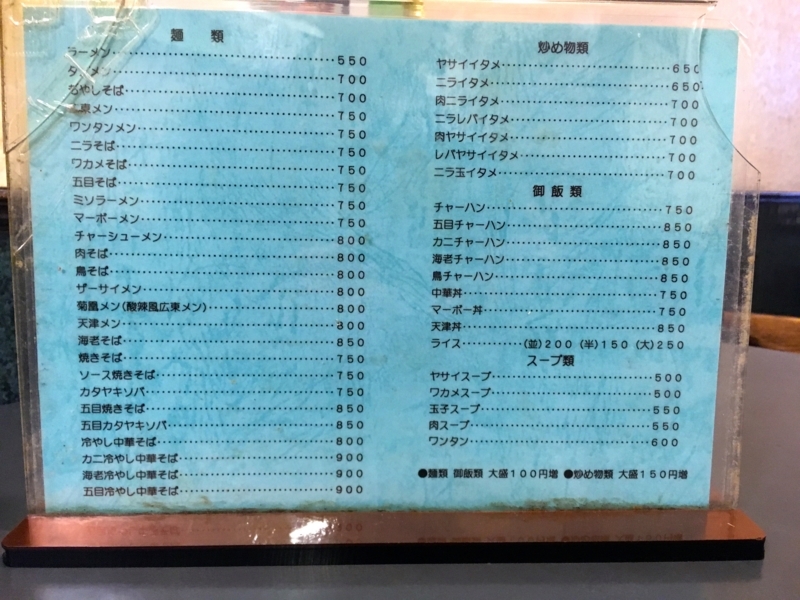 麺 類
ラーメン‥‥‥‥‥‥‥‥‥‥550
タンメン‥‥‥‥‥‥‥‥‥‥700
もやしそば‥‥‥‥‥‥‥‥‥‥700
広東メン‥‥‥‥‥‥‥‥‥‥750
ワンタンメン‥‥‥‥‥‥‥‥‥‥750
ニラそば‥‥‥‥‥‥‥‥‥‥750
ワカメそば‥‥‥‥‥‥‥‥‥‥750
五目そば‥‥‥‥‥‥‥‥‥‥750
ミソラーメン‥‥‥‥‥‥‥‥‥‥750
マーボーメン‥‥‥‥‥‥‥‥‥‥750
チャーシューメン‥‥‥‥‥‥‥‥‥‥800
肉そば‥‥‥‥‥‥‥‥‥‥800
鳥そば‥‥‥‥‥‥‥‥‥‥800
ザーサイメン‥‥‥‥‥‥‥‥‥‥800
菊凰メン(酸辣風広東メン)‥‥‥‥‥‥800
天津メン‥‥‥‥‥‥‥‥‥‥800
海老そば‥‥‥‥‥‥‥‥‥‥850
焼きそば‥‥‥‥‥‥‥‥‥‥750
ソース焼きそば‥‥‥‥‥‥‥‥‥‥750
カタヤキソバ‥‥‥‥‥‥‥‥‥‥750
五目焼きそば‥‥‥‥‥‥‥‥‥‥850
五目カタヤキソバ‥‥‥‥‥‥‥‥‥‥850
冷やし中華そば‥‥‥‥‥‥‥‥‥‥800
カニ冷やし中華そば‥‥‥‥‥‥‥‥‥‥900
海老冷やし中華そば‥‥‥‥‥‥‥‥‥‥900
五目冷やし中華そば‥‥‥‥‥‥‥‥‥‥900
炒め物類
ヤサイイタメ‥‥‥‥‥‥‥‥‥‥650
ニライタメ‥‥‥‥‥‥‥‥‥‥650
肉ニライタメ‥‥‥‥‥‥‥‥‥‥700
ニラレバイタメ‥‥‥‥‥‥‥‥‥‥700
肉ヤサイイタメ‥‥‥‥‥‥‥‥‥‥700
レバヤサイイタメ‥‥‥‥‥‥‥‥‥‥700
ニラ玉イタメ‥‥‥‥‥‥‥‥‥‥700
御飯類
チャーハン‥‥‥‥‥‥‥‥‥‥750
五目チャーハン‥‥‥‥‥‥‥‥‥‥850
カニチャーハン‥‥‥‥‥‥‥‥‥‥850
海老チャーハン‥‥‥‥‥‥‥‥‥‥850
鳥チャーハン‥‥‥‥‥‥‥‥‥‥850
中華丼‥‥‥‥‥‥‥‥‥‥750
マーボー丼‥‥‥‥‥‥‥‥‥‥750
天津丼‥‥‥‥‥‥‥‥‥‥850
ライス‥‥‥‥(並)200 (半)150 (大)250
スープ類
ヤサイスープ‥‥‥‥‥‥‥‥‥‥500
ワカメスープ‥‥‥‥‥‥‥‥‥‥500
玉子スープ‥‥‥‥‥‥‥‥‥‥550
肉スープ‥‥‥‥‥‥‥‥‥‥550
ワンタン‥‥‥‥‥‥‥‥‥‥600
●麺類 御飯類 大盛100円増 ●炒め物類 大盛150円増